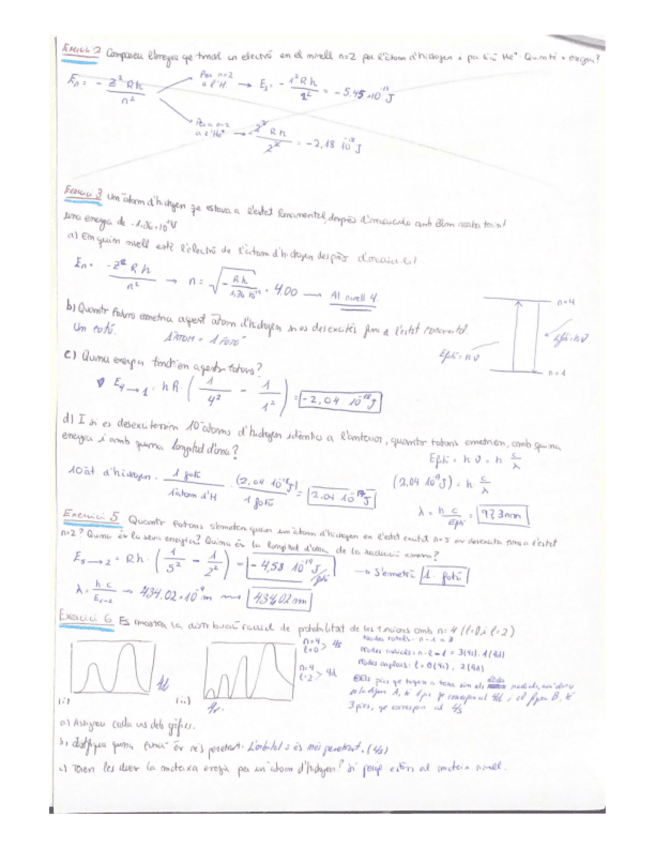 Exercici 2 Compareu l'energia que tindrà un electró en el nivell n=2 per l'àtom d'hidrogen i per l'ió He⁺. Quantè + energia?
Eₙ = - Z² Rh / n²
Per n=2 a l'H → E₂ = - 1² Rh / 2² = -5,45·10⁻¹⁹ J
Per n=2 a l'He⁺ → - 2² Rh / 2² = -2,18 10⁻¹⁸ J
Exercici 3 Un àtom d'hidrogen que estava a l'estat fonamental, després d'
una energia de -1.36·10⁻¹⁹
a) En quin nivell està l'electró de l'àtom d'hidrogen després d'
Eₙ = -Z² R h / n² → n = √ - Rh / 1.36 10⁻¹⁹ = 4.00 → Al nivell 4.
n=4
b) Quants fotons emetria aquest àtom d'hidrogen si es desexcités fins a l'estat fonamental
Un fotó. 1 àtom = 1 fotó
Efotó = hν
Efotó = hν
n=1
c) Quina energia tindrien aquests fotons?
E₄→₁ = hR·( 1/4² - 1/1² ) = -2,04 10⁻¹⁸ J
d) I si es desexcitessin 10 àtoms d'hidrogen idèntics a l'anterior, quants fotons emetrien, amb quina
energia i amb quina longitud d'ona?
Efotó = h ν = h c/λ
10 àt d'hidrogen · 1 fotó / 1 àtom d'H · (2,04 10⁻¹⁸ J) / 1 fotó = 2.04 10⁻¹⁷ J
(2,04 10⁻¹⁸ J) = h c/λ
λ = h c / Efotó = 97,3 nm
Exercici 5 Quants fotons s'emeten quan un àtom d'hidrogen en l'estat excitat n=5 es desexcita fins a l'estat
n=2? Quina és la seva energia? Quina és la longitud d'ona de la radiació emesa?
E₅→₂ = Rh·( 1/5² - 1/2² ) = -4,58 10⁻¹⁹ J/fotó → S'emetrà 1 fotó
λ = h c / E₅→₂ → 434.02·10⁻⁹ m → 434.02 nm
Exercici 6 Es mostren la distribució radial de probabilitat de les funcions amb n=4 (l=0 i l=2)
n=4 l=0 > 4s
n=4 l=2 > 4d
Nodes totals: n-1 = 3
Nodes radials: n-l-1 = 3(4s), 1(4d)
Nodes angulars: l = 0(4s), 2(4d)
4d
4s
(i)
(ii)
3 pics, que correspon al 4s
a) Assigneu cada un dels gràfics.
b) Justifiqueu quina funció és més penetrant. L'orbital s és més penetrant. (4s)
c) Tenen les dues la mateixa energia per un àtom d'hidrogen? Sí perquè estan al mateix nivell.